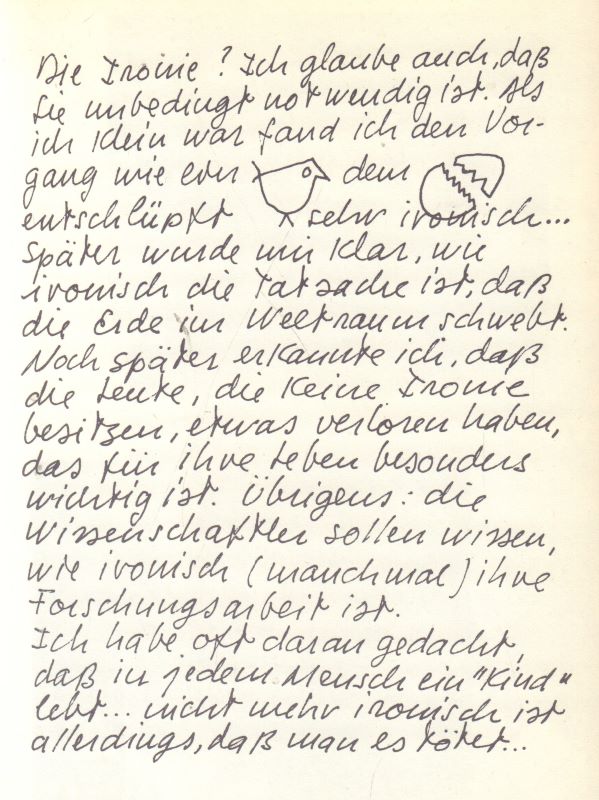 Die Ironie? Ich glaube auch, daß
sie unbedingt notwendig ist. Als
ich klein war fand ich den Vor-
gang wie ein dem
entschlüpft sehr ironisch...
Später wurde mir klar, wie
ironisch die Tatsache ist, daß
die Erde im Weltraum schwebt.
Noch später erkannte ich, daß
die Leute, die keine Ironie
besitzen, etwas verloren haben,
das für ihre Leben besonders
wichtig ist. Übrigens: die
Wissenschaftler sollen wissen,
wie ironisch (manchmal) ihre
Forschungsarbeit ist.
Ich habe oft daran gedacht,
daß in jedem Mensch ein "Kind"
lebt... nicht mehr ironisch ist
allerdings, daß man es tötet...